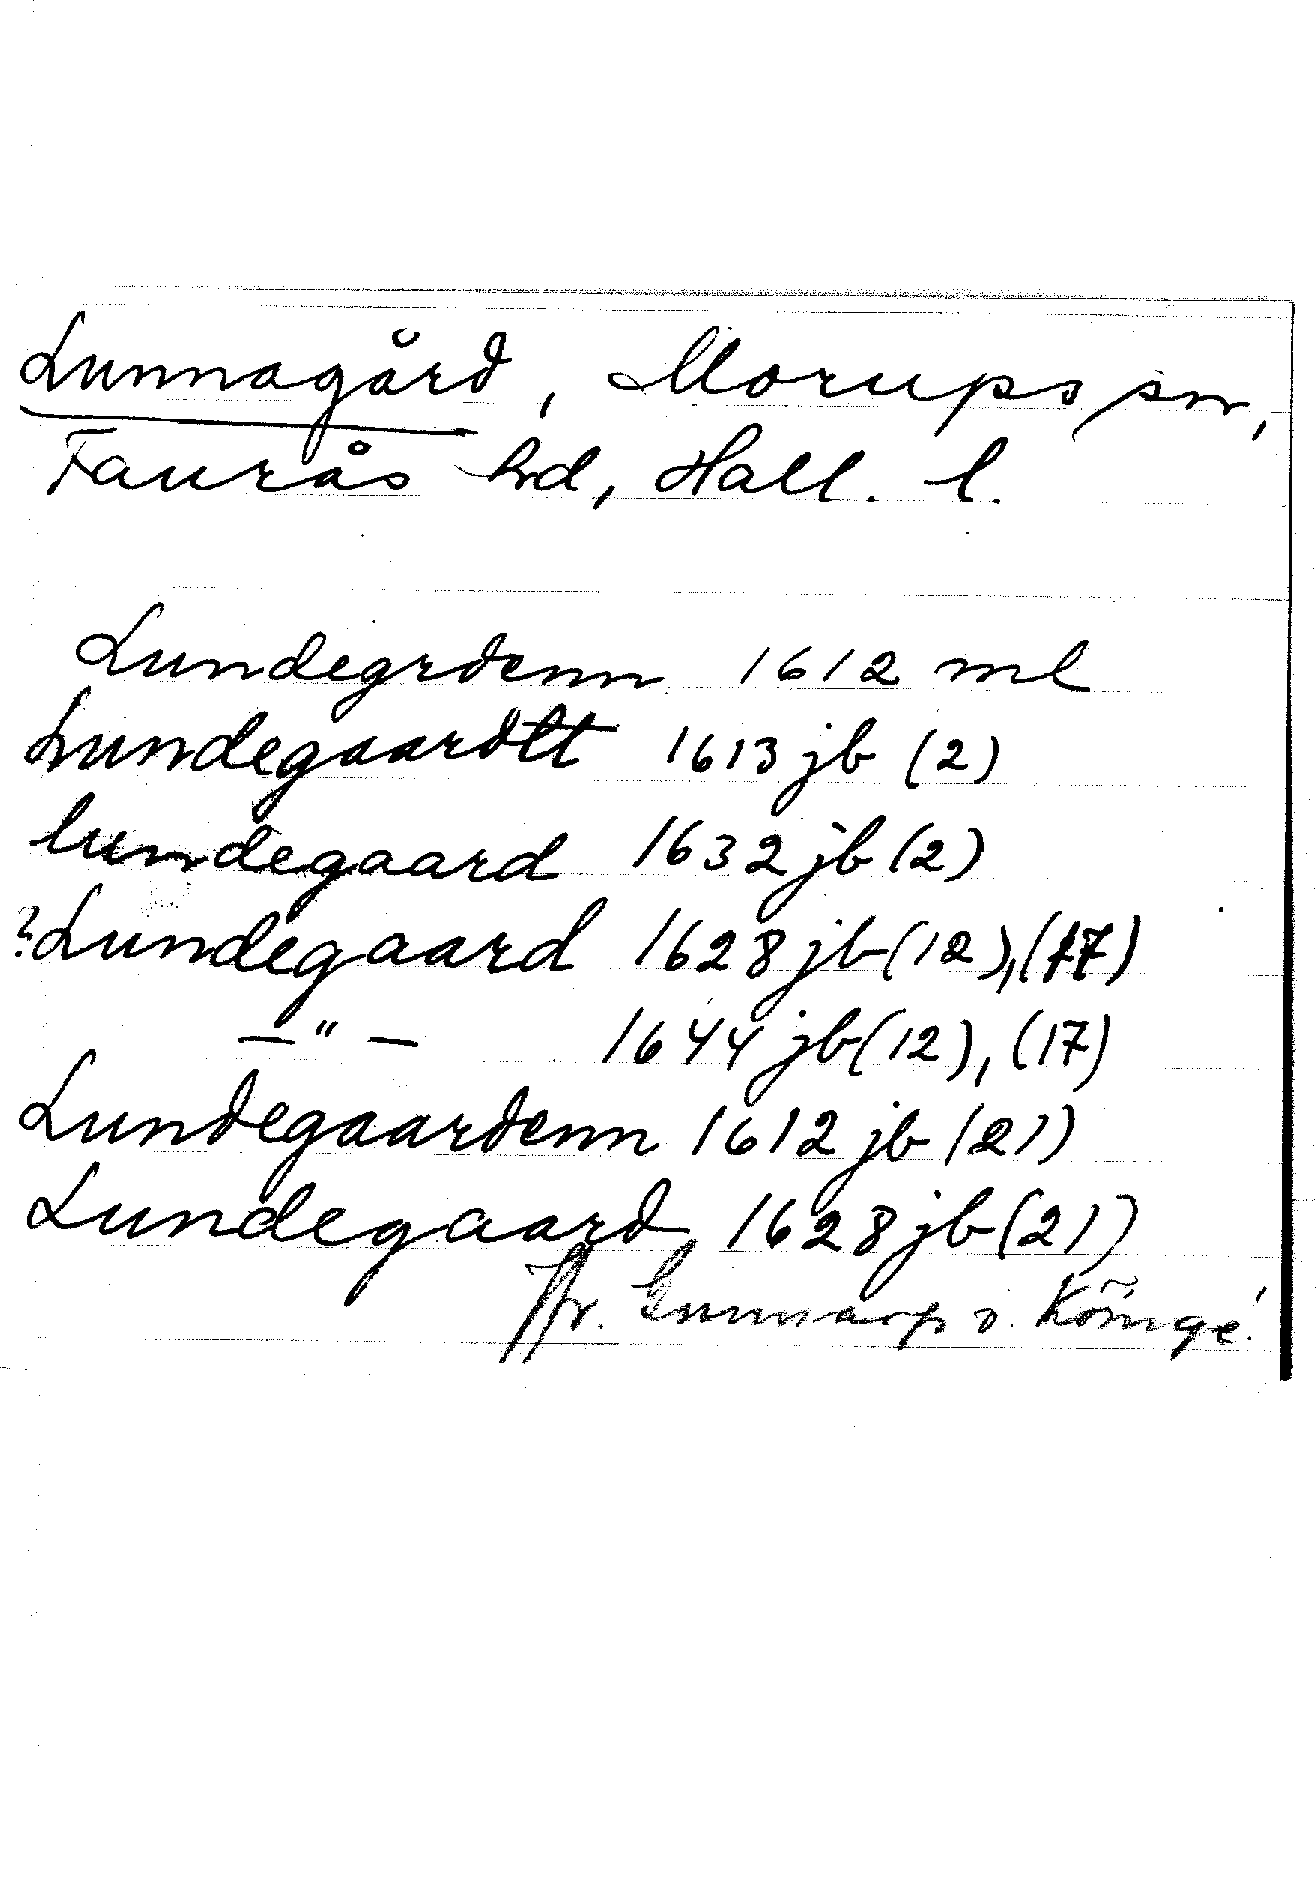 Lunnagård, Morups sn,
Faurås hd, Hall. l.
Lundegrdenn 1612 ml
Lundegaardtt 1613 jb (2)
lundegaard 1632 jb (2)
?Lundegaard 1628 jb (12), (17)
—"— 1644 jb (12), (17)
Lundegaardenn 1612 jb (21)
Lundegaard 1628 jb (21)
Jfr. Gunnarp o. Köinge!